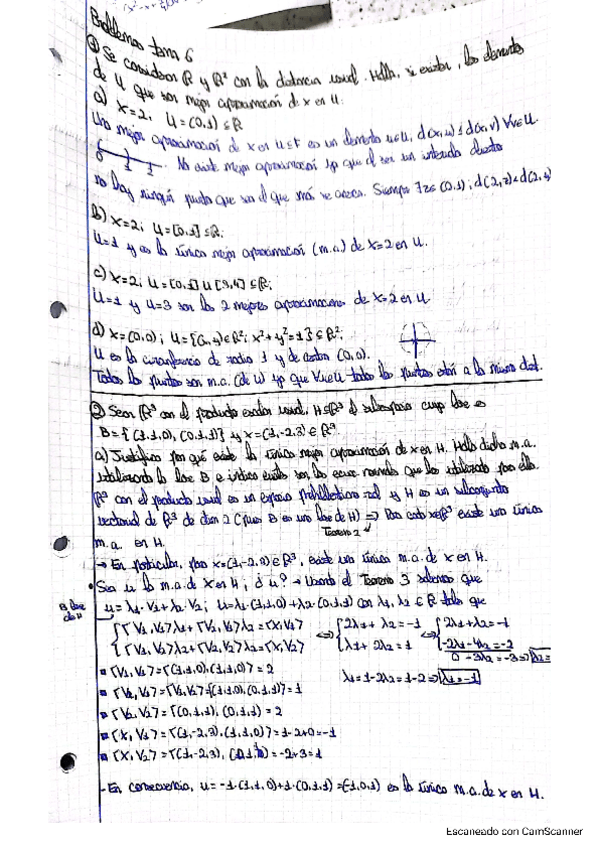 Problemas tema 6
① Se consideran R y R² con la distancia usual. Halla, si existen, los elementos
de U que son mejor aproximación de x en U.
a) x=2; U=(0,1)⊆R
Una mejor aproximación de x en U⊆F es un elemento u∈U, d(x,u)≤d(x,v) ∀v∈U.
0 1 2 No existe mejor aproximación ya que al ser un intervalo abierto
no hay ningún punto que sea el que más se acerca. Siempre ∃z∈(0,1); d(2,z)<d(2,
b) x=2; U=[0,1]⊆R;
u=1 y es la única mejor aproximación (m.a.) de x=2 en U.
c) x=2; U=[0,1]∪[3,4]⊆R;
u=1 y u=3 son las 2 mejores aproximaciones de x=2 en U.
d) x=(0,0); U={(x,y)∈R²; x²+y²=1}⊆R²;
U es la circunferencia de radio 1 y de centro (0,0).
Todos los puntos son m.a. (de U) ya que ∀u∈U todos los puntos están a la misma dist.
② Sean R³ con el producto escalar usual, H⊆R³ el subespacio cuya base es
B={(1,1,0), (0,1,1)} y x=(1,-2,3)∈R³.
a) Justifica por qué existe la única mejor aproximación de x en H. Halla dicha m.a.
utilizando la base B e indica cuáles son las ecuaciones normales que has utilizado para ello.
R³ con el producto usual es un espacio prehilbertiano real y H es un subconjunto
vectorial de R³ de dim 2 (pues B es una base de H) ⇒ Para cada x∈R³ existe una única
Teorema 2
m.a. en H.
→ En particular, para x=(1,-2,3)∈R³, existe una única m.a. de x en H.
• Sea u la m.a. de x en H, ¿u? → Usando el Teorema 3 sabemos que
B base de H
u=λ₁·V₁+λ₂·V₂; u=λ₁(1,1,0)+λ₂(0,1,1) con λ₁,λ₂∈R tales que
{⟨V₁,V₁⟩λ₁+⟨V₁,V₂⟩λ₂=⟨X,V₁⟩ ⇔ {2λ₁+λ₂=-1 ⇔ {2λ₁+λ₂=-1
{⟨V₂,V₁⟩λ₁+⟨V₂,V₂⟩λ₂=⟨X,V₂⟩ {λ₁+2λ₂=1 -2λ₁-4λ₂=-2
0-3λ₂=-3⇒λ₂=
▪ ⟨V₁,V₁⟩=⟨(1,1,0),(1,1,0)⟩=2
λ₁=1-2λ₂=1-2⇒λ₁=-1
▪ ⟨V₁,V₂⟩=⟨V₂,V₁⟩=⟨(1,1,0),(0,1,1)⟩=1
▪ ⟨V₂,V₂⟩=⟨(0,1,1),(0,1,1)⟩=2
▪ ⟨X,V₁⟩=⟨(1,-2,3),(1,1,0)⟩=1-2+0=-1
▪ ⟨X,V₂⟩=⟨(1,-2,3),(0,1,1)⟩=-2+3=1
- En consecuencia, u=-1·(1,1,0)+1·(0,1,1)=(-1,0,1) es la única m.a. de x en H.
Escaneado con CamScanner